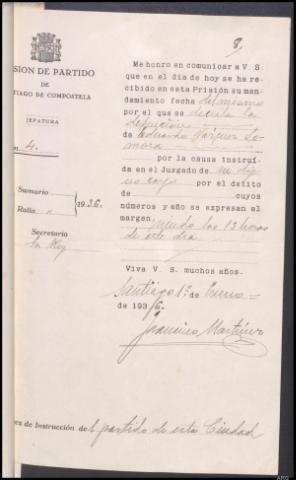 8,
SION DE PARTIDO
DE
TIAGO DE COMPOSTELA
EFATURA
n 4.
Sumario
Rollo " 1936.
Secretario
Me honro en comunicar a V. S.
que en el día de hoy se ha re-
cibido en esta Prisión su man-
damiento fecha del mismo
por el que se decreta la
detención
de Eduardo Vázquez
por la causa instruí-
da en el Juzgado de su dig
no cargo por el delito
de cuyos
números y año se expresan al
margen, siendo las 13 horas
de este día
Viva V. S. muchos años.
Santiago 1º de
de 1936.
Martínez
ez de Instrucción del partido de esta Ciudad
ARG